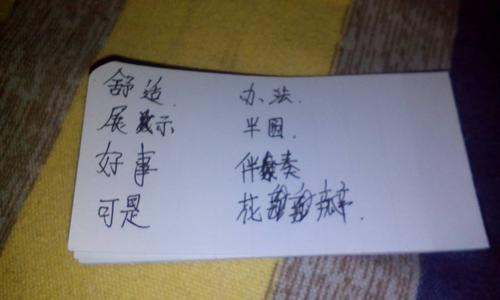 舒适. 办法.
展示 半圆.
好事 伴奏
可是 花瓣.